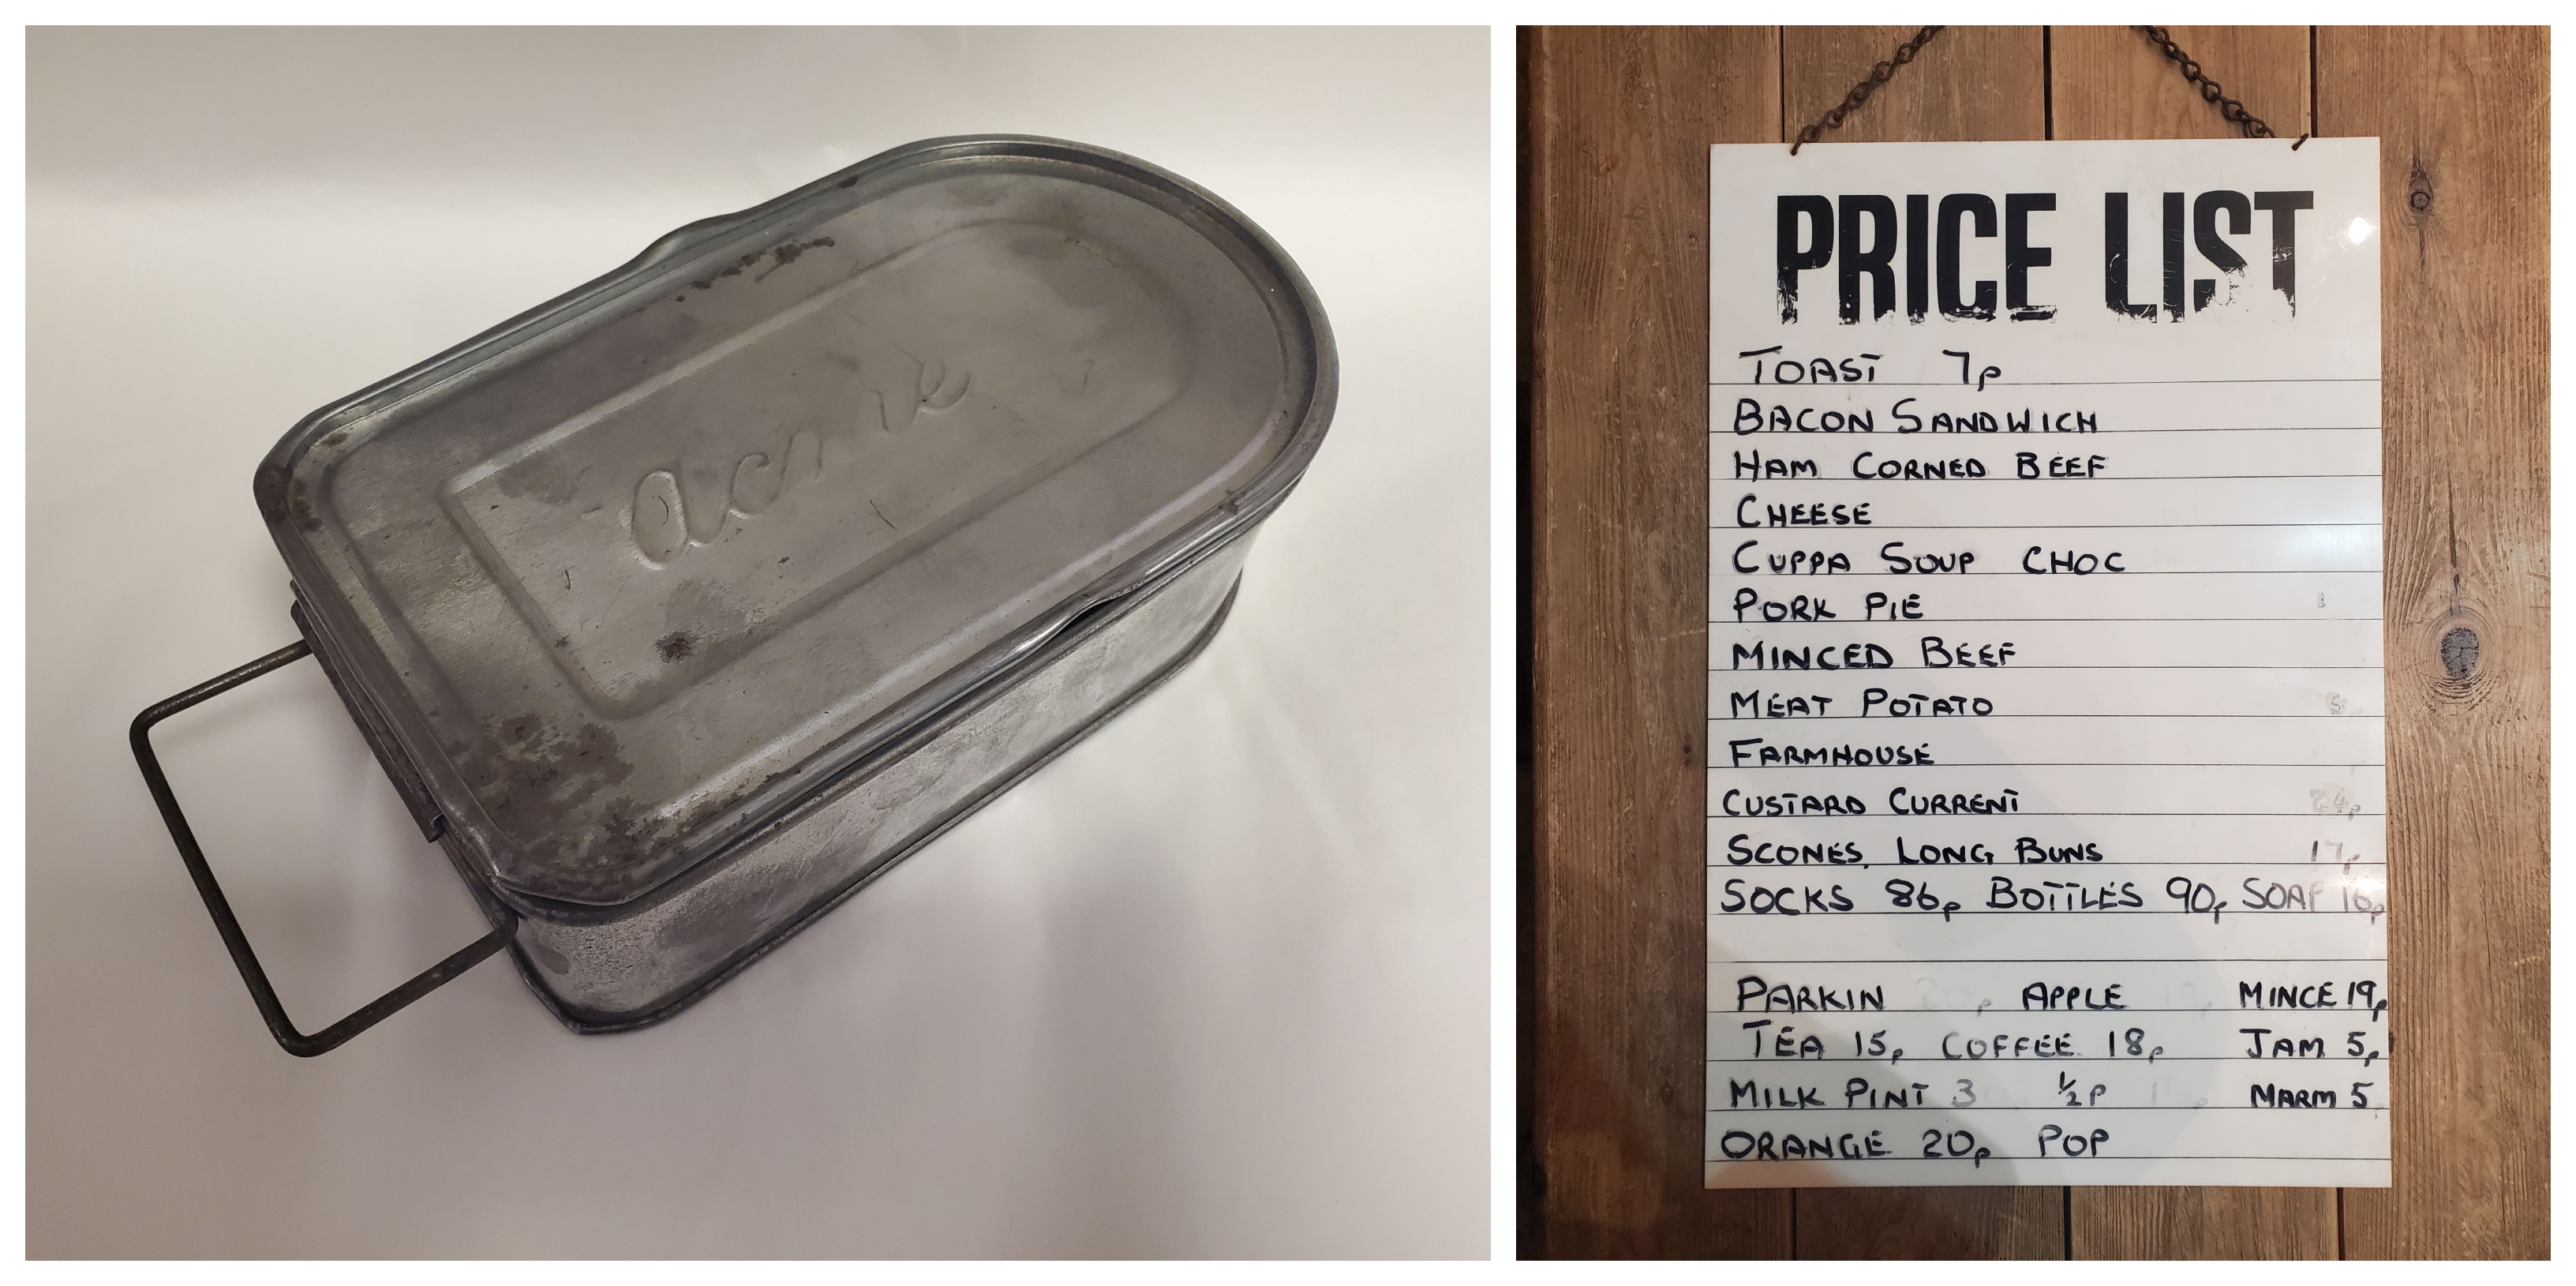 acme
PRICE LIST
TOAST 7p
BACON SANDWICH
HAM CORNED BEEF
CHEESE
CUPPA SOUP CHOC
PORK PIE
MINCED BEEF
MEAT POTATO
FARMHOUSE
CUSTARD CURRENT 24p
SCONES, LONG BUNS 17p
SOCKS 86p BOTTLES 90p SOAP 16p
PARKIN 20p APPLE MINCE 19p
TEA 15p COFFEE 18p JAM 5p
MILK PINT 3 ½P MARM 5
ORANGE 20p POP